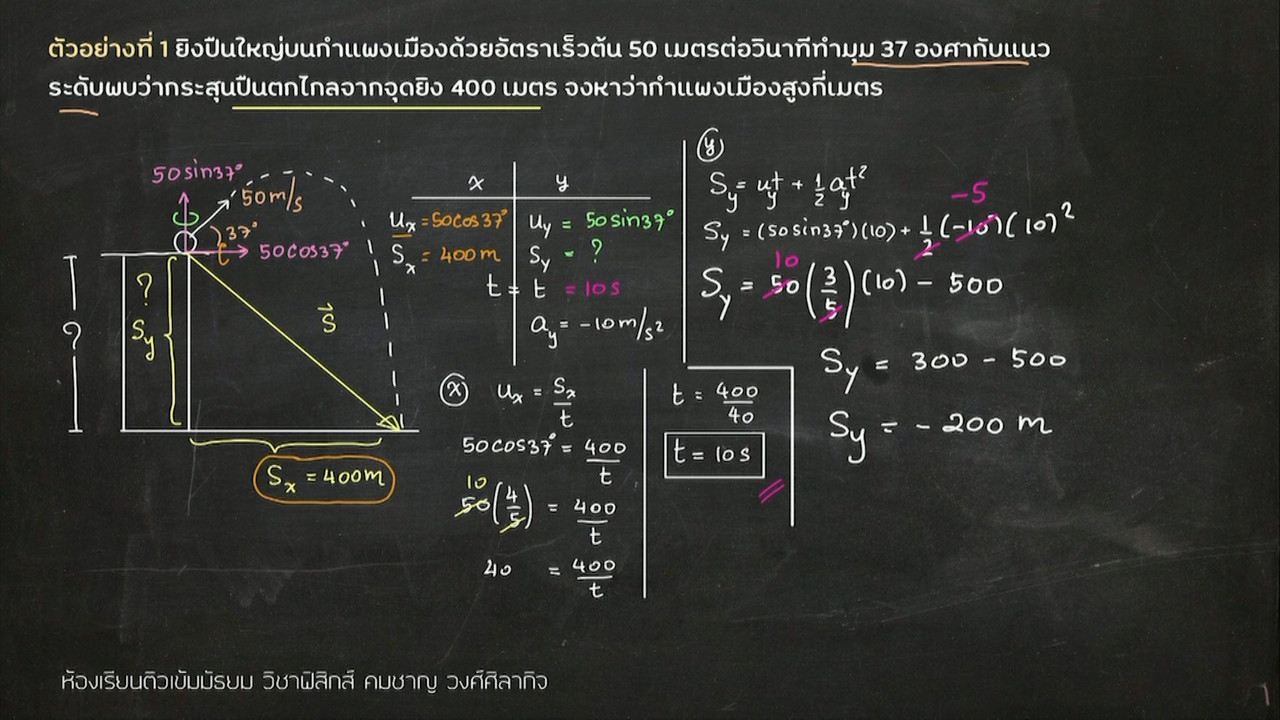 ตัวอย่างที่ 1 ยิงปืนใหญ่บนกำแพงเมืองด้วยอัตราเร็วต้น 50 เมตรต่อวินาทีทำมุม 37 องศากับแนว
ระดับพบว่ากระสุนปืนตกไกลจากจุดยิง 400 เมตร จงหาว่ากำแพงเมืองสูงกี่เมตร
50sin37°
50m/s
37°
50cos37°
?
?
Sy
S⃗
Sx = 400m
x y
ux = 50cos37° uy = 50sin37°
Sx = 400m Sy = ?
t = t = 10s
ay = -10m/s²
ⓧ ux = Sx/t
50cos37° = 400/t
10
50(4/5) = 400/t
40 = 400/t
t = 400/40
t = 10s
ⓨ
Sy = uyt + ½ayt²
-5
Sy = (50sin37°)(10) + ½(-10)(10)²
10
Sy = 50(3/5)(10) - 500
Sy = 300 - 500
Sy = -200 m
ห้องเรียนติวเข้มมัธยม วิชาฟิสิกส์ คมชาญ วงศ์ศิลากิจ
1